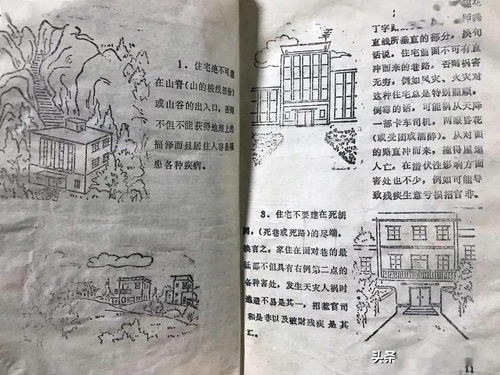 1. 住宅地不可建
在山脊(山的棱线部份)
或山谷的出入口,否则
不但不能获得地理上的
福泽而且居住人容易罹
患各种疾病。
丁字路
直线所垂直的部分。换句
话说,住宅前面不可有直
冲而来的巷路。否则祸害
无穷,例如风灾、火灾对
这种住宅总是特别照顾。
倒霉的话,可能祸从天降
一部卡车司机,两眼昏花
(或受困或酒醉)。从对面
的路直冲而来,撞得屋塌
人亡。在潜伏性影响方面
害处也不少,例如可能导
致残疾生意亏损招官非。
3. 住宅不要建在死胡
同,(死巷或死路)的尽端,
换言之,家住在面对巷的最
底部不但具有右例第二点的
各种害处,发生天灾人祸时
逃避不易是其一,招惹官司
和是非以及破财残疾是其
二。
11
头条